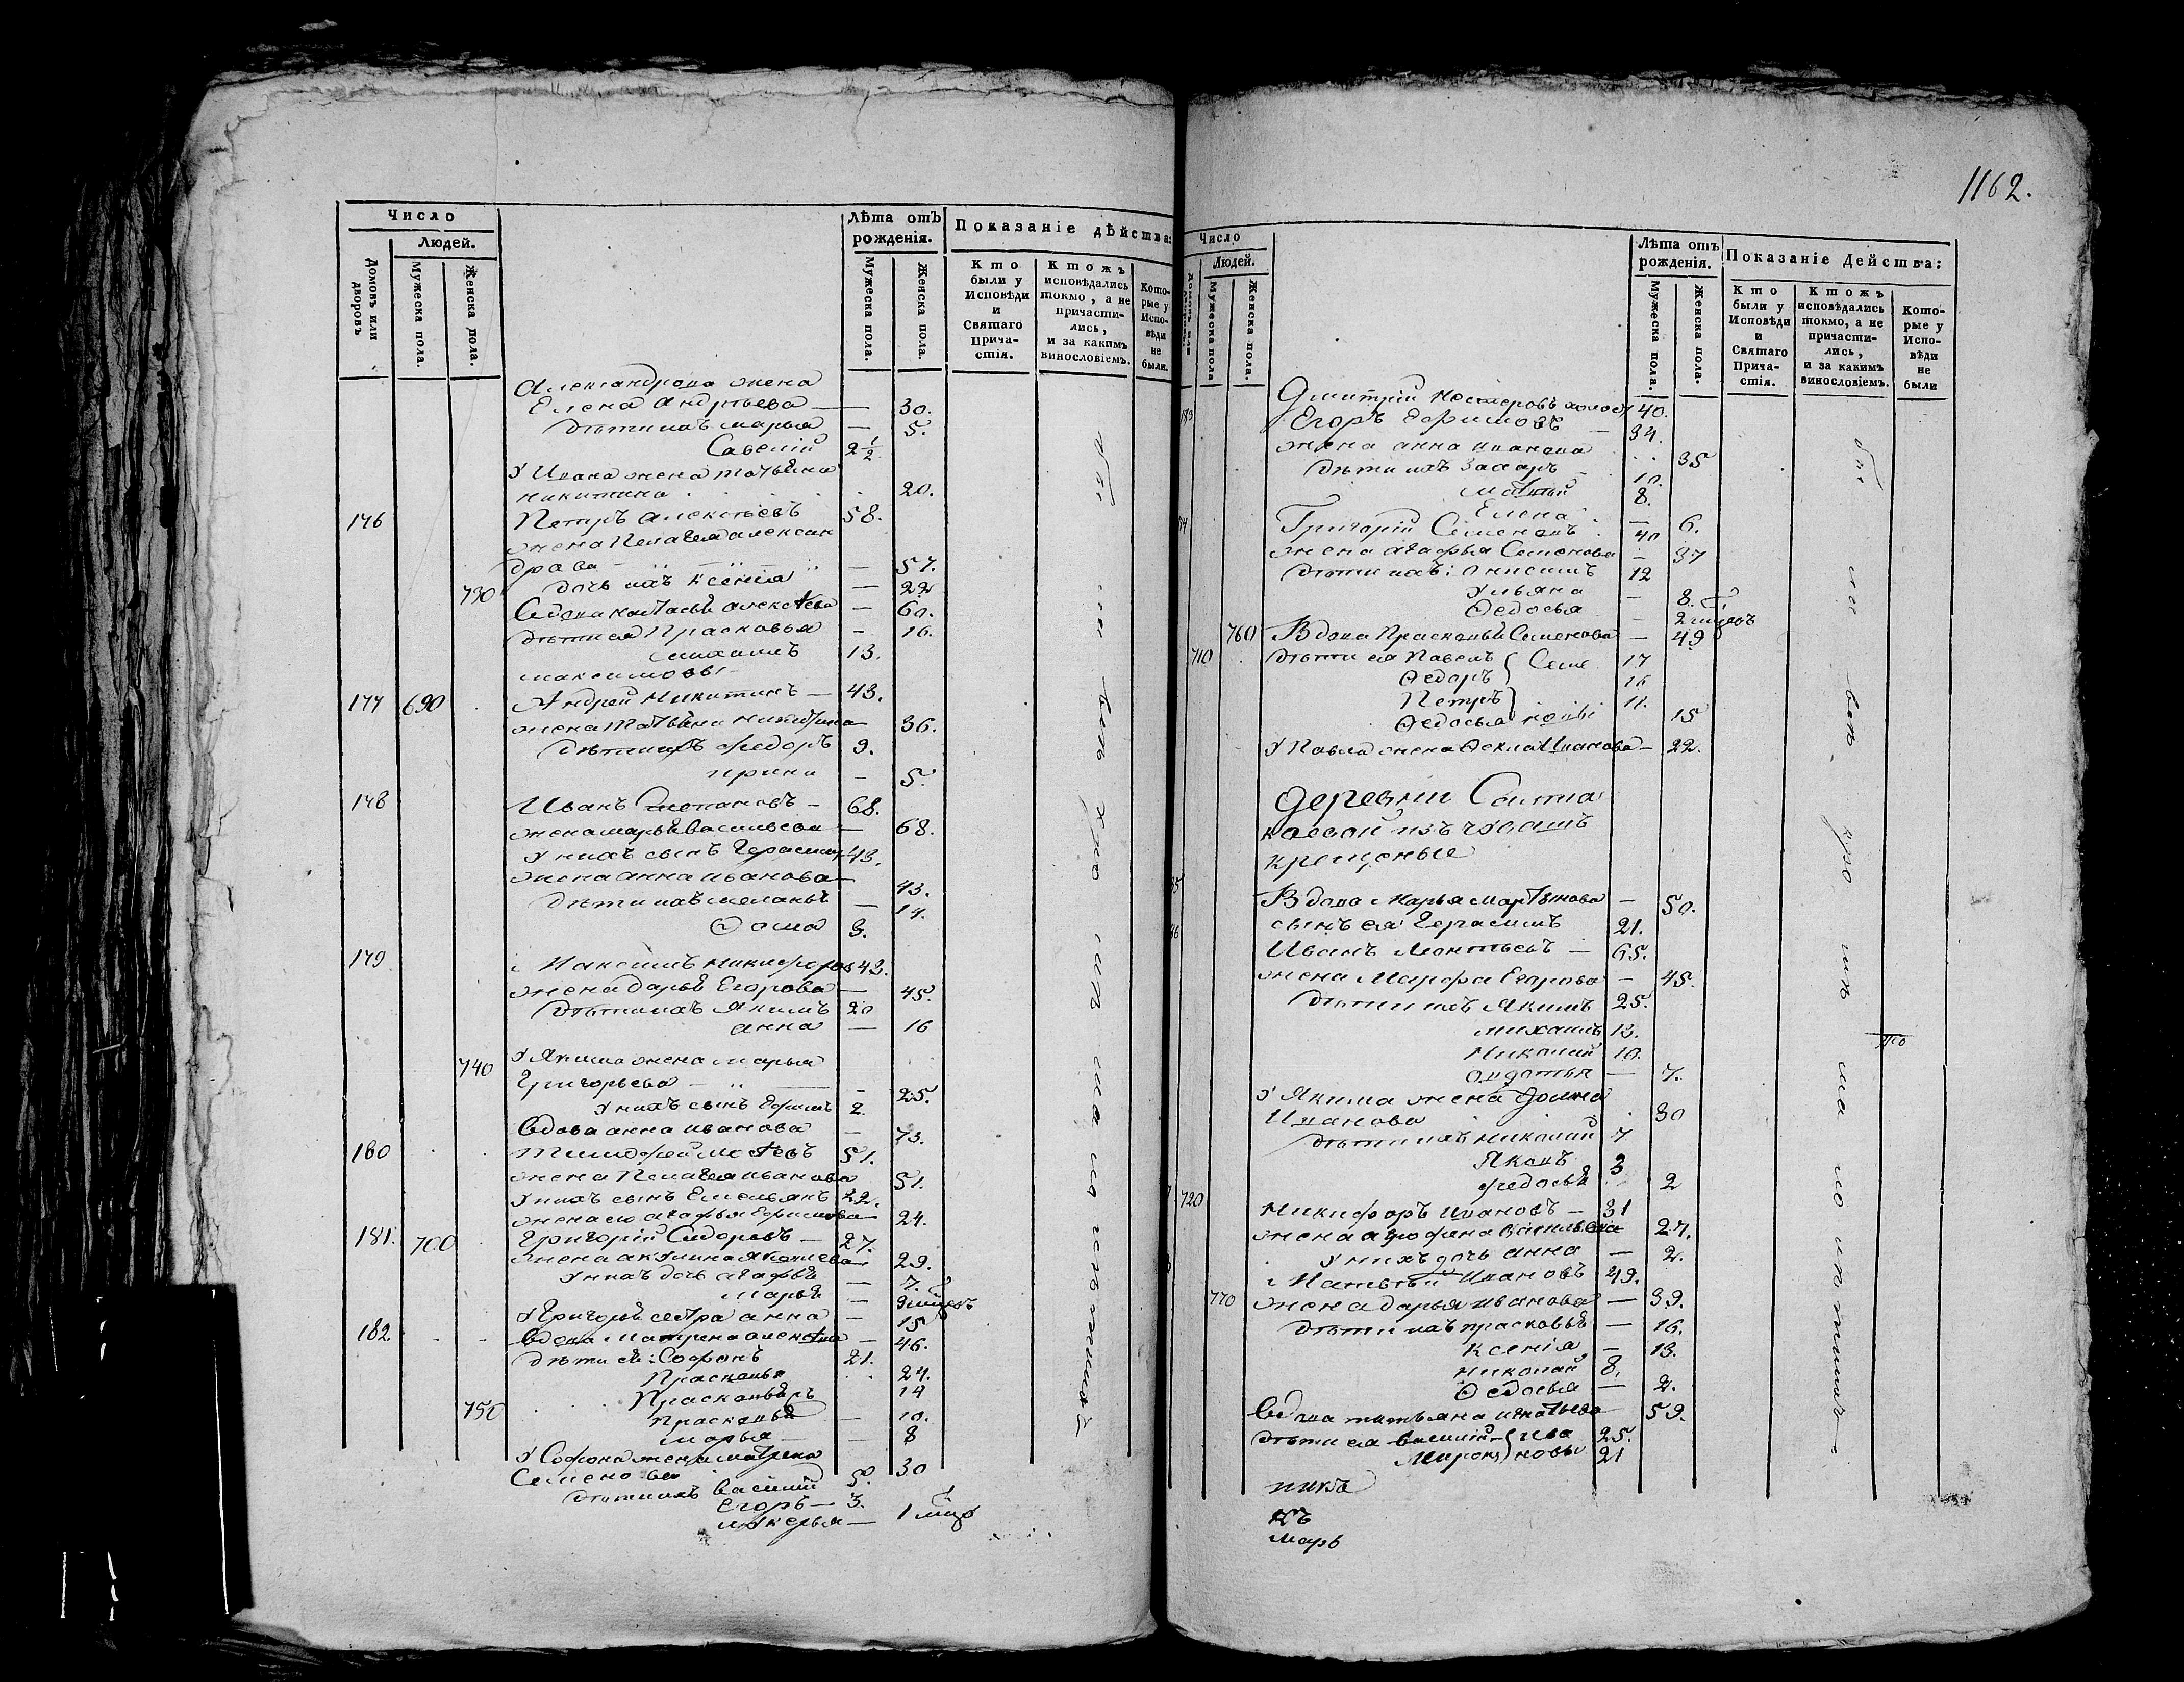 1162.
Число
Людей.
Домовъ или дворовъ
Мужеска пола.
Женска пола.
Лѣта отъ рожденія.
Мужеска пола.
Женска пола.
Показаніе дѣйства:
Кто были у Исповѣди и Святаго Прича-стія.
Ктожъ исповѣдались токмо, а не причасти-лись, и за какимъ винословіемъ.
Кото-рые у Испо-вѣди не были.
Александрова жена
Елена Андрѣева — 30.
дѣти ихъ Марья — 5.
Савелій 2½
У Ивана жена Татьяна
Никитина 20.
176 Петръ Алексѣевъ 58.
жена Пелагея Алексан
дрова — 57.
730 дочь ихъ Ксенія — 22
Вдова Настасья Алексѣева — 60.
дѣти ея Прасковья — 16.
Михаилъ 13.
Максимовы
177 690 Андрей Никитинъ — 43.
жена Татьяна Никитина 36.
дѣти ихъ Федоръ 9.
Ирина — 5.
178 Иванъ Степановъ — 68.
жена Марья Васильева — 68.
У нихъ сынъ Герасимъ 43.
жена Анна Иванова 43.
дѣти ихъ Меланья — 14.
Ѳома 3.
179 Максимъ Никифоровъ 43.
жена Дарья Егорова — 45.
дѣти ихъ Якимъ 20
Анна — 16
740 У Якима жена Марья
Григорьева — 25.
У нихъ сынъ Ефимъ 2.
Вдова Анна Иванова — 73.
180 Тимофей 51.
жена Пелагея Иванова 51.
У нихъ сынъ Емельянъ 22.
жена ею Агафья Ефимова 24.
181. 700 Григорій Сидоровъ — 27.
жена Акулина Яковлева 29.
У нихъ дочь Агафья — 7.
Марья — 9 мцовъ
У Григорья сестра Анна — 15
182 Вдова Матрена Алексѣева — 46.
дѣти ея: Софонъ 21.
Прасковья 24.
Прасковья 14
750 Прасковья — 10.
Марья — 8
У Софона жена Матрена
Семенова 30
дѣти ихъ Василий 5.
Егоръ — 3.
Лукерья — 1 мцъ
Число
Людей.
Мужеска пола
Женска пола.
Лѣта отъ рожденія.
Мужеска пола.
Женска пола.
Показаніе Действа:
Кто были у Исповѣди и Святаго Прича-стія.
Ктожъ исповѣдались токмо, а не причасти-лись, и за какимъ винословіемъ.
Кото-рые у Испо-вѣди не были
Дмитрій Нестеровъ холостъ 40.
Егоръ Ефимовъ — 34.
жена Анна Иванова 35
дѣти ихъ Захаръ 10.
Матвѣй 8.
Елена — 6.
Григорій Семеновъ 40
жена Агафья Семенова — 37
дѣти ихъ: Онисимъ 12
Ульяна — 8.
Ѳедосья — 2 мцовъ
760 Вдова Прасковья Семенова — 49
710 дѣти ея Павелъ Семе 17
Ѳедоръ 16
Петръ 11.
Ѳедосья новы 15
У Павла жена Ѳекла Иванова — 22.
Деревни
изъ чувашъ
крещеные
Вдова Марья Мартынова — 50.
сынъ ея Герасимъ 21.
Иванъ Леонтьевъ — 65.
жена Марфа Егорова — 45.
дѣти ихъ Якимъ 25.
Михаилъ 13.
Николай 10.
Авдотья — 7.
У Якима жена
Иванова 30
дѣти ихъ Николай 7
Яковъ 3
Федосья 2
720 Никифоръ Ивановъ — 31
жена Аграфена Васильева 27.
У нихъ дочь Анна — 2.
Матвѣй Ивановъ 49.
770 жена Дарья Иванова — 39.
дѣти ихъ Прасковья — 16.
Ксенія — 13.
Николай 8.
Ѳедосья — 2.
Вдова Татьяна Игнатьева 59.
дѣти ея Василий Ива 25.
Миронъ новы 21